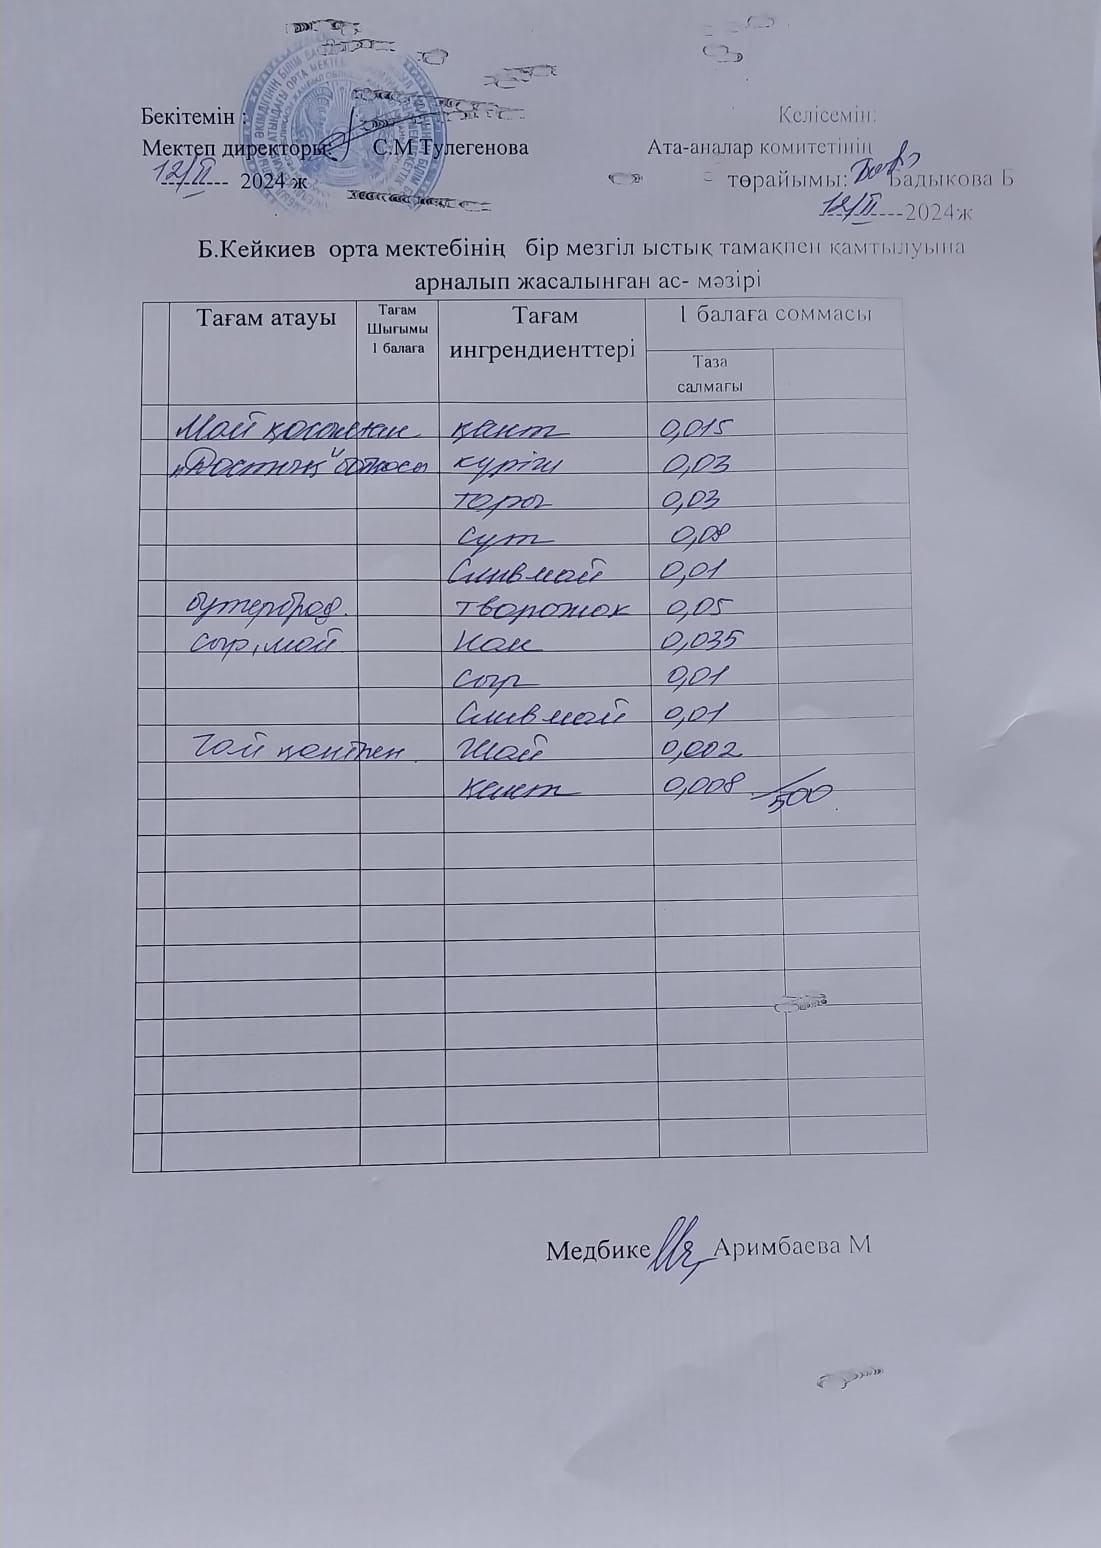 Бекітемін :
Келісемін:
Мектеп директоры: С.М Тулегенова
Ата-аналар комитетінің
12/II 2024 ж
төрайымы: Бадыкова Б
12/II ----2024ж
Б.Кейкиев орта мектебінің бір мезгіл ыстық тамақпен қамтылуына
арналып жасалынған ас- мәзірі
Тағам атауы
Тағам
Шығымы
1 балаға
Тағам
ингрендиенттері
1 балаға соммасы
Таза
салмағы
Май қосылған қант 0,015
"Достық" ботқасы күріш 0,03
тары 0,03
Сүт 0,08
Слив май 0,01
бутерброд творожок 0,05
сыр, май Нан 0,035
Сыр 0,01
Слив май 0,01
Шай қантпен Шай 0,002
Қант 0,008 500
Медбике Аримбаева М